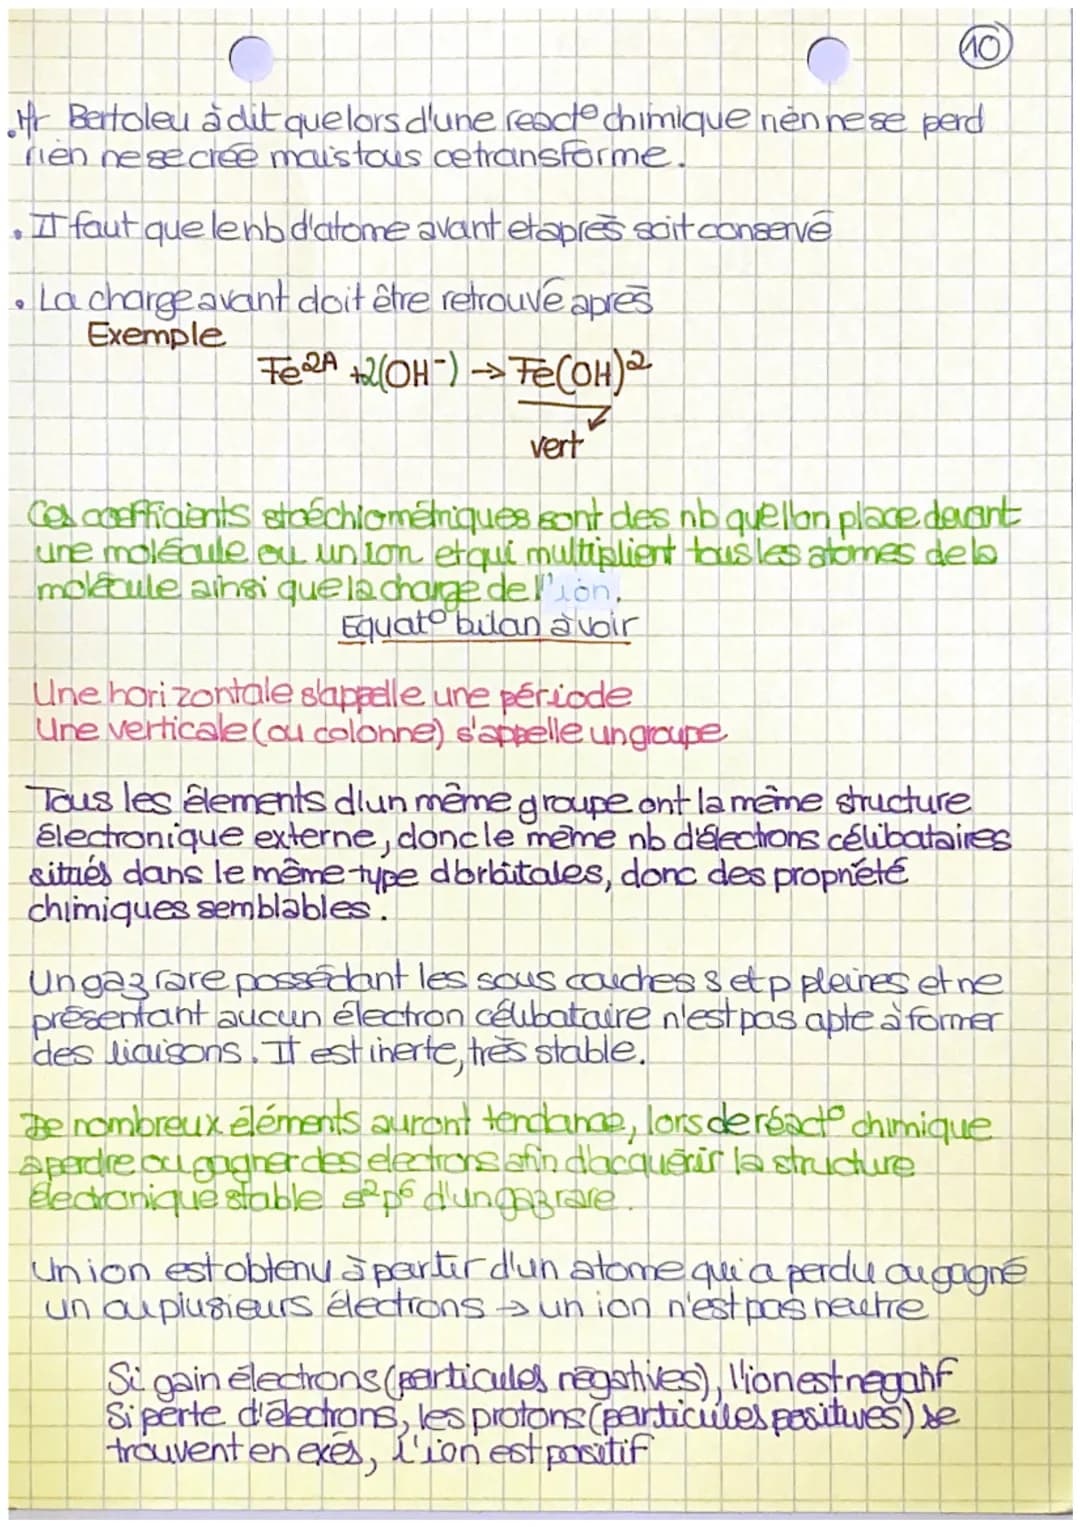 10
. Mr Bertoleu à dit que lors d'une react° chimique rien ne se perd
rien ne se crée mais tous ce transforme.
• Il faut que le nb d'atome avant et après soit conservé
• La charge avant doit être retrouvé après
Exemple
Fe2A +2(OH-) → Fe(OH)2
vert
Ces coefficients stoéchiométriques sont des nb que l'on place devant
une molécule ou un ion et qui multiplient tous les atomes de la
molécule ainsi que la charge de l'ion.
Equat° bilan à voir
Une horizontale s'appelle une période
Une verticale (ou colonne) s'appelle un groupe
Tous les élements d'un même groupe ont la même structure
électronique externe, donc le même nb d'élections célibataires
situés dans le même type d'orbitales, donc des propriété
chimiques semblables.
Un gaz rare possédant les sous couches s et p pleines et ne
présentant aucun électron célibataire n'est pas apte à former
des liaisons. Il est inerte, très stable.
De nombreux éléments auront tendance, lors de réact° chimique
à perdre ou gagner des electrons afin d'acquérir la structure
électronique stable s²p⁶ d'un gaz rare.
Un ion est obtenu à partir d'un atome qui a perdu ou gagné
un ou plusieurs électrons → un ion n'est pas neutre
Si gain électrons (particules négatives), l'ion est negatif
Si perte d'électrons, les protons (particules positives) se
trouvent en exés, l'ion est positif